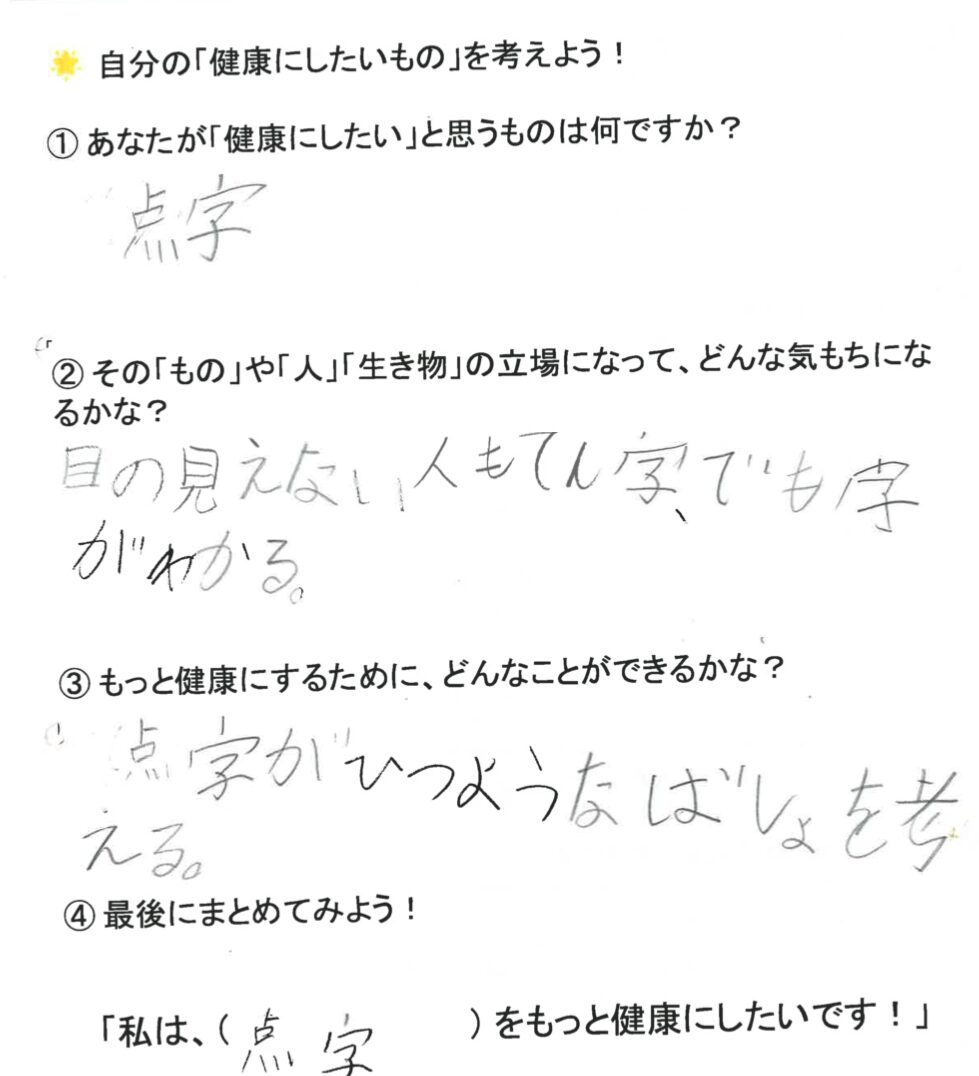 自分の「健康にしたいもの」を考えよう！
① あなたが「健康にしたい」と思うものは何ですか？
点字
② その「もの」や「人」「生き物」の立場になって、どんな気もちにな
るかな？
目の見えない人もてん字、でも字
がわかる。
③ もっと健康にするために、どんなことができるかな？
点字がひつようなばしょを考
える。
④ 最後にまとめてみよう！
「私は、（ 点字 ）をもっと健康にしたいです！」